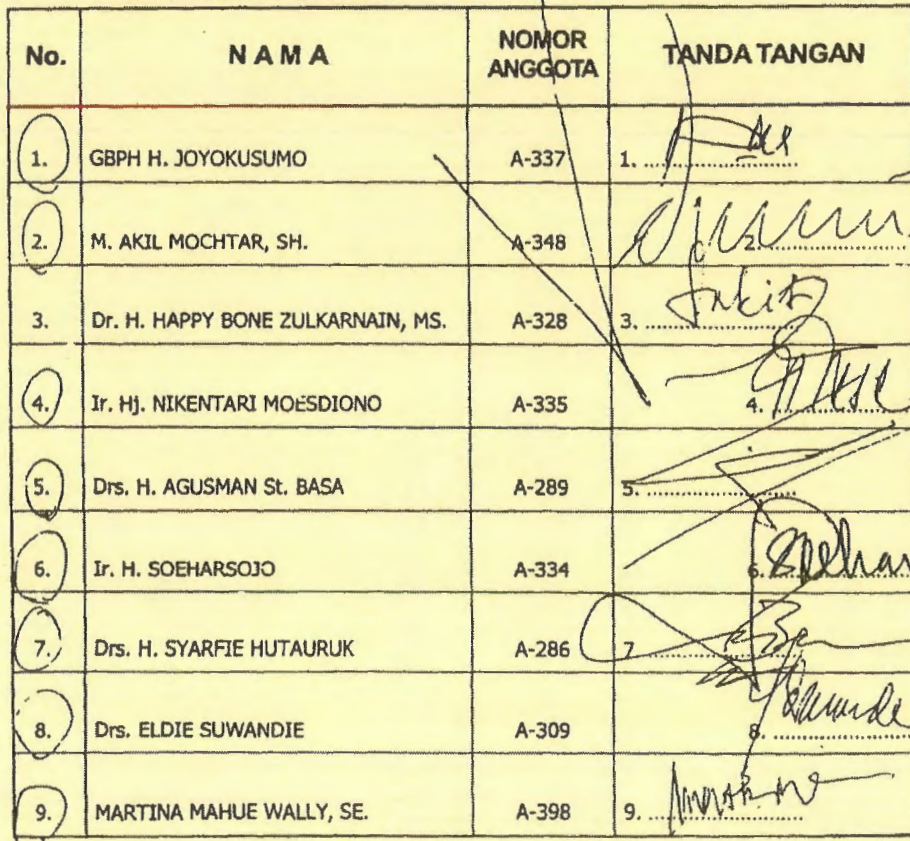 No. NAMA NOMOR ANGGOTA TANDA TANGAN
1. GBPH H. JOYOKUSUMO A-337 1. ....................
2. M. AKIL MOCHTAR, SH. A-348 2. ....................
3. Dr. H. HAPPY BONE ZULKARNAIN, MS. A-328 3. ....................
4. Ir. Hj. NIKENTARI MOESDIONO A-335 4. ....................
5. Drs. H. AGUSMAN St. BASA A-289 5. ....................
6. Ir. H. SOEHARSOJO A-334 6. ....................
7. Drs. H. SYARFIE HUTAURUK A-286 7 ....................
8. Drs. ELDIE SUWANDIE A-309 8. ....................
9. MARTINA MAHUE WALLY, SE. A-398 9. ....................